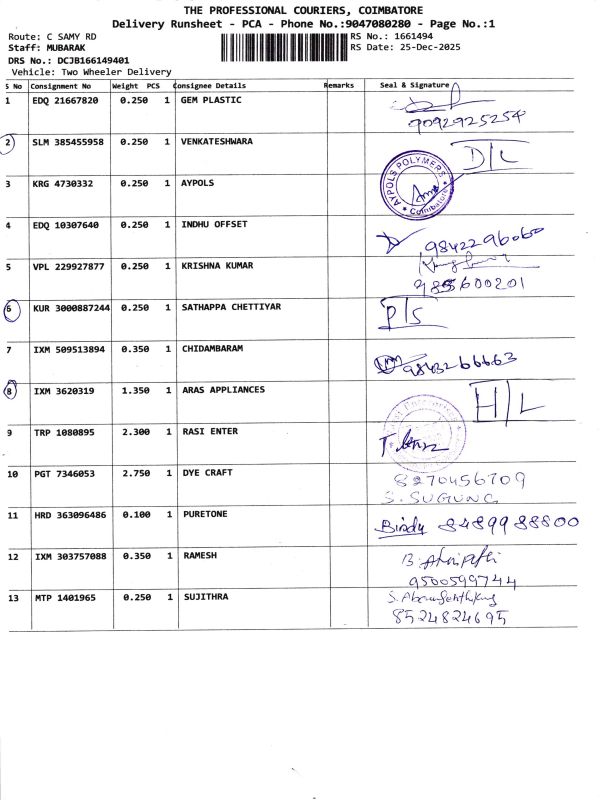 THE PROFESSIONAL COURIERS, COIMBATORE
Delivery Runsheet - PCA - Phone No.:9047080280 - Page No.:1
Route: C SAMY RD RS No.: 1661494
Staff: MUBARAK RS Date: 25-Dec-2025
DRS No.: DCJB166149401
Vehicle: Two Wheeler Delivery
S No Consignment No Weight PCS Consignee Details Remarks Seal & Signature
1 EDQ 21667820 0.250 1 GEM PLASTIC
9092925254
2 SLM 385455958 0.250 1 VENKATESHWARA D/L
3 KRG 4730332 0.250 1 AYPOLS AYPOLS POLYMERS Coimbatore
4 EDQ 10307640 0.250 1 INDHU OFFSET
9842296060
5 VPL 229927877 0.250 1 KRISHNA KUMAR
6 KUR 3000887244 0.250 1 SATHAPPA CHETTIYAR P/S
7 IXM 509513894 0.350 1 CHIDAMBARAM
9843266663
8 IXM 3620319 1.350 1 ARAS APPLIANCES H/L
9 TRP 1080895 2.300 1 RASI ENTER
10 PGT 7346053 2.750 1 DYE CRAFT 8270456709
S. SUGUNA
11 HRD 363096486 0.100 1 PURETONE 8489988800
12 IXM 303757088 0.350 1 RAMESH
9500599744
13 MTP 1401965 0.250 1 SUJITHRA
8524824695